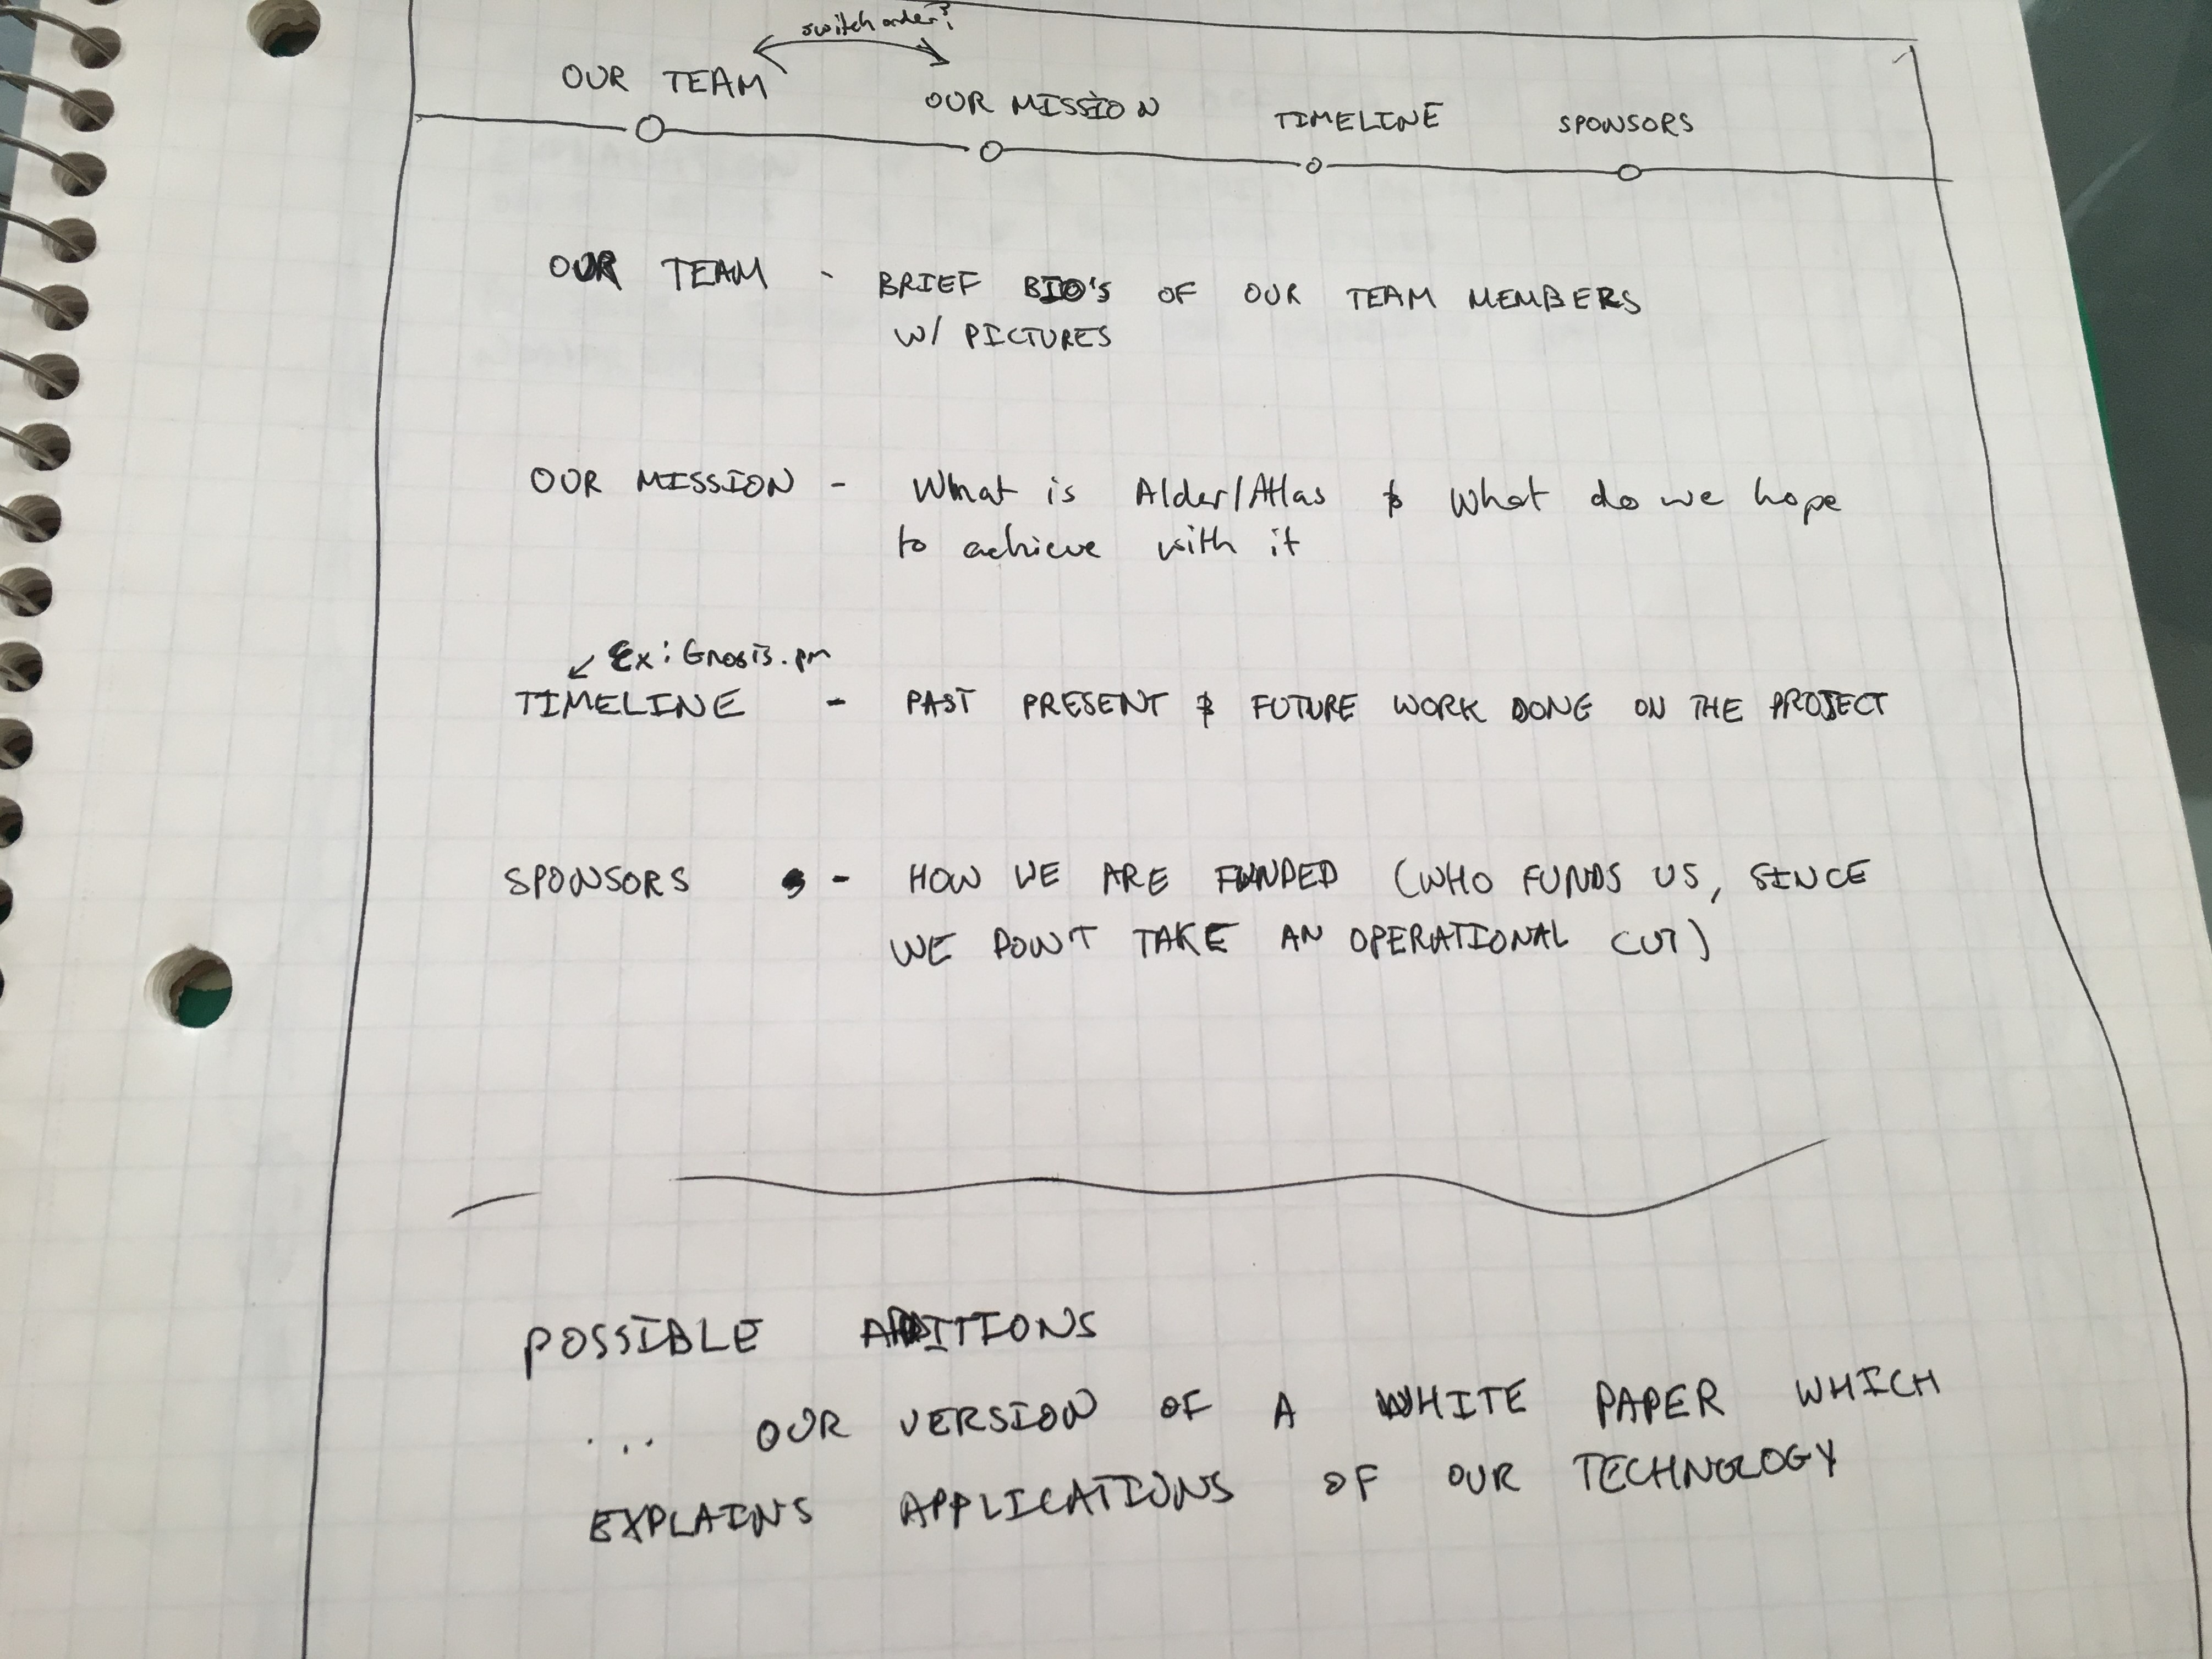 switch order?
OUR TEAM
OUR MISSION
TIMELINE
SPONSORS
OUR TEAM - BRIEF BIO'S OF OUR TEAM MEMBERS
W/ PICTURES
OUR MISSION - What is Alder/Atlas & What do we hope
to achieve with it
Ex: Gnosis.pm
TIMELINE - PAST PRESENT & FUTURE WORK DONE ON THE PROJECT
SPONSORS - HOW WE ARE FUNDED (WHO FUNDS US, SINCE
WE DON'T TAKE AN OPERATIONAL CUT)
POSSIBLE ADDITIONS
... OUR VERSION OF A WHITE PAPER WHICH
EXPLAINS APPLICATIONS OF OUR TECHNOLOGY